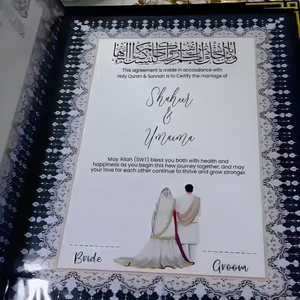 This agreement is made in accordance with
Holy Quran & Sunnah is to Certify the marriage of
Shaheer
&
Umaima
May Allah (SWT) bless you both with health and
happiness as you begin this new journey together, and may
your love for each other continue to thrive and grow stronger.
Bride
Groom